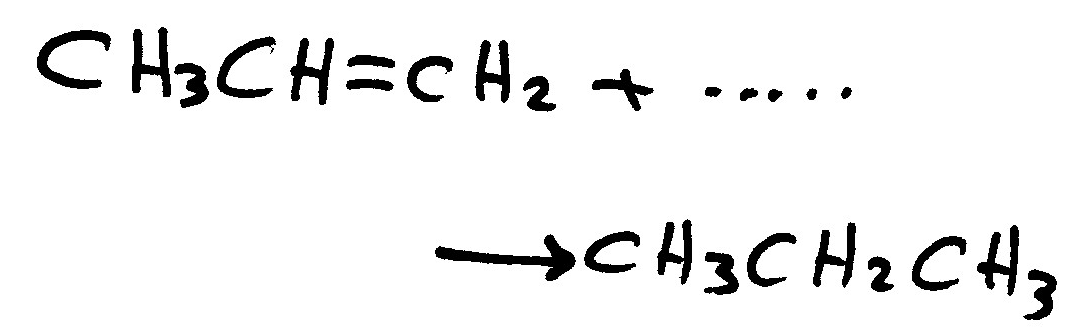 CH3CH=CH2 + .....
→CH3CH2CH3